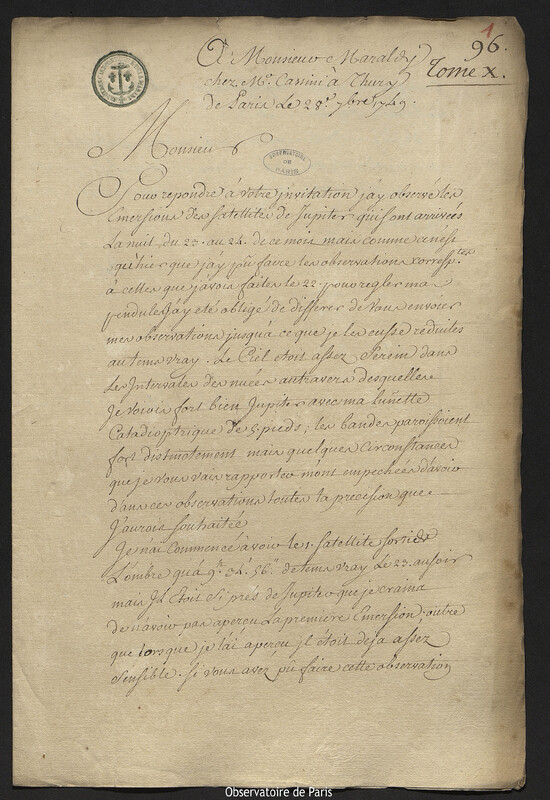 1
96.
Tome X.
A Monsieur Maraldy
chez Mr. Cassini à Thury
de Paris Le 28e. 7bre. 1749.
OBSERVATOIRE
DE
PARIS
Monsieur
Pour repondre à votre invitation j'ay observé les
Emersions des satellites de Jupiter qui sont arrivées
La nuit, du 23. au 24. de ce mois mais comme ce n'est
qu'hier que j'ay pu faire les observations corresp.tes
à celles que j'avois faites le 22. pour regler ma
pendule J'ay eté obligé de differer de vous envoier
mes observations jusqu'à ce que je les eusse reduites
au tems vray. Le Ciel étoit assez serein dans
Les Intervales des nuées autravers desquelles
Je voiois fort bien Jupiter avec ma lunette
Catadioptrique de 5. pieds; les bandes paroissoient
fort distinctement mais quelques circonstances
que je vous vais rapporter m'ont empechées d'avoir
dans ces observations toutes la precision que
J'aurois souhaitée
Je n'ai commencé à voir le 1. satellite sortir de
L'ombre qu'à 9h. 34'. 56". de tems vray Le 23. au soir
mais Il Etoit si prés de Jupiter que je crains
de n'avoir pas aperçu La premiere Emersion. outre
que lorsque je l'ai aperçu il étoit deja assez
sensible. si vous avez pu faire cette observation
Observatoire de Paris